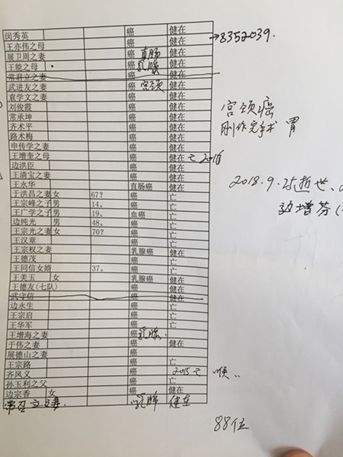 闵秀英 癌 健在 →8352039.
王亦伟之母 癌 健在
展卫周之妻 癌 直肠 健在
王能之母 癌 乳腺 健在
常君立之妻 癌 健在
武进友之妻 癌 宫颈 健在
袁学文之妻 癌 健在
刘俊霞 癌 健在
常承坤 癌 健在
齐术平 癌 健在
路术梅 癌 健在
申传学之妻 癌 健在
王增奎之母 癌 健在 亡
边洪臣 癌 健在
王清宝之妻 癌 健在
王永华 直肠癌 健在
于洪昌之妻 女 67? 癌 亡
王宗峰之子 男 14. 癌 亡
王广学之子 男 19. 血癌 亡
边纯光 男 48. 癌 亡
王宗光之妻 女 70? 癌 亡
王汉章 癌 亡
王宗权之妻 乳腺癌 健在
王德茂 癌 亡
王同信女婿 37. 癌 亡
王美玉 女 乳腺癌 健在
王德友(七队) 癌 亡
武守信 癌 健在
边永生 癌 亡
王宗启 癌 亡
王华军 癌 亡
王增海之妻 癌 乳腺.
于伟之妻 癌 健在
展德山之妻 癌
王宗路 癌 亡
齐风义 癌 亡
孙玉利之父 癌 亡
边宗香 女 癌 健在
乳腺 健在
宫颈癌
刚作完手术 胃
2018.9.25逝世、
88位